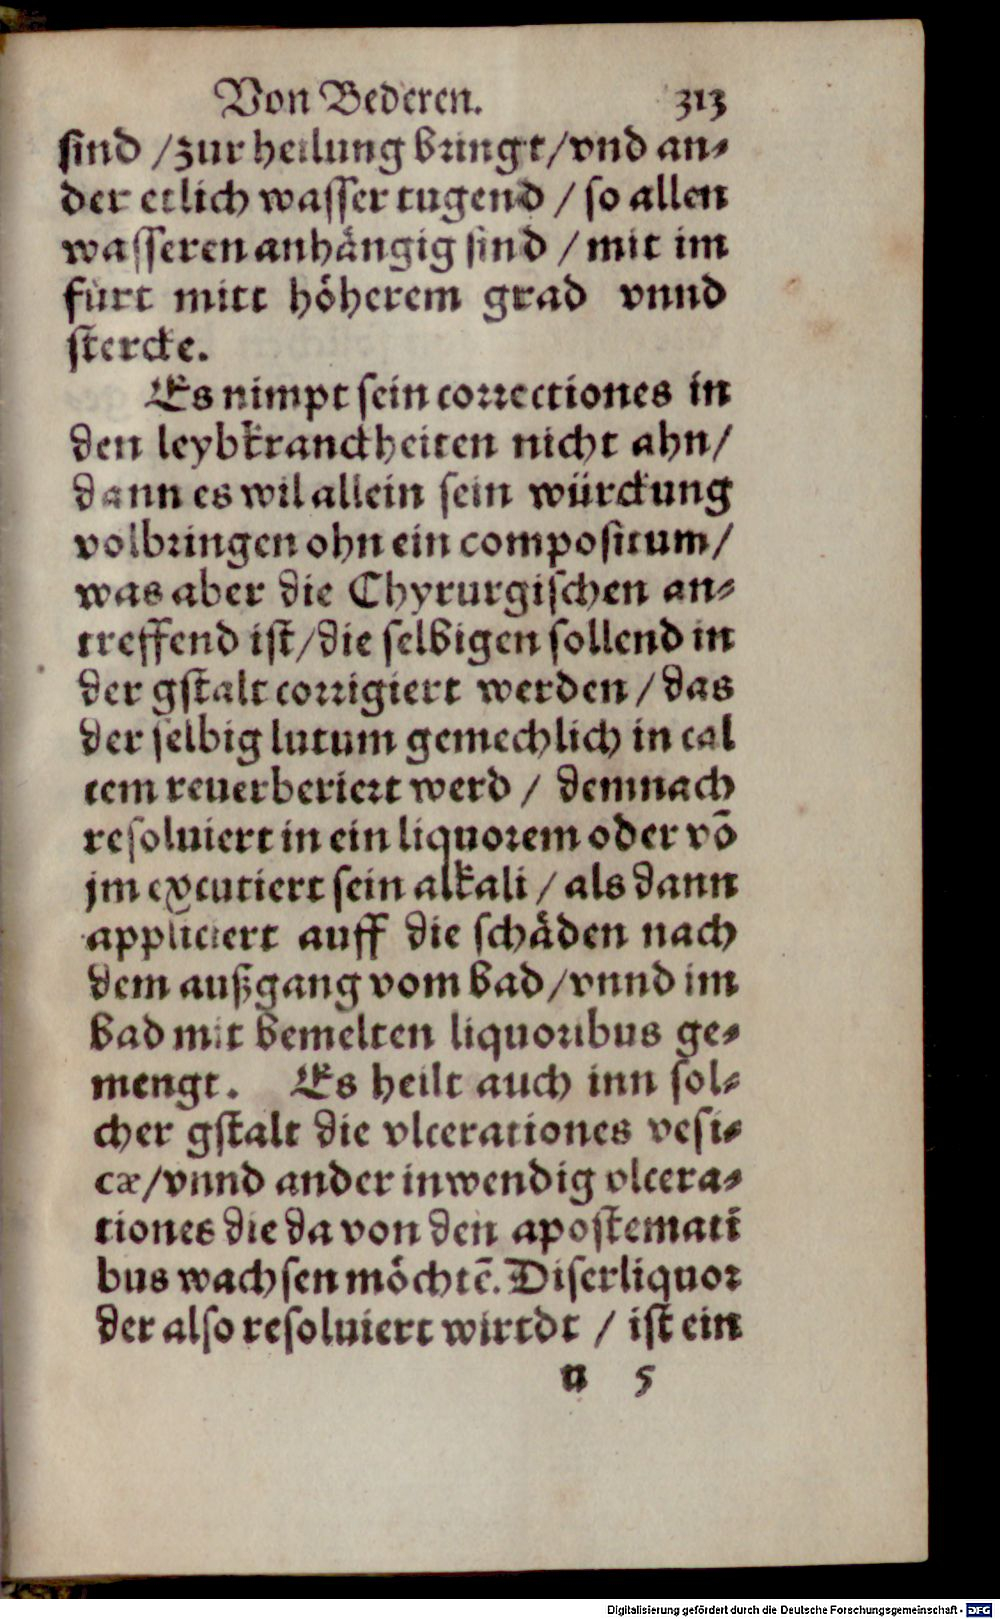 Von Bederen. 313
sind / zur heilung bringt / vnd an-
der etlich wasser tugend / so allen
wasseren anhängig sind / mit im
fürt mitt höherem grad vnnd
stercke.
Es nimpt sein correctiones in
den leybkranckheiten nicht ahn /
dann es wil allein sein würckung
volbringen ohn ein compositum /
was aber die Chyrurgischen an-
treffend ist / die selbigen sollend in
der gstalt corrigiert werden / das
der selbig lutum gemechlich in cal
cem reuerberiert werd / demnach
resoluiert in ein liquorem oder võ
jm excutiert sein alkali / als dann
appliciert auff die schäden nach
dem außgang vom bad / vnnd im
bad mit bemelten liquoribus ge-
mengt. Es heilt auch inn sol-
cher gstalt die vlcerationes vesi-
cæ / vnnd ander inwendig vlcera-
tiones die da von den apostemati
bus wachsen möchtē. Diser liquor
der also resoluiert wirtdt / ist ein
n 5
Digitalisierung gefördert durch die Deutsche Forschungsgemeinschaft - DFG